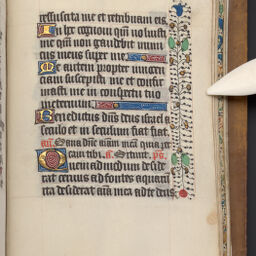 ressuscita me et retribuam eis
In hoc cognovi qm voluisti
me qm non gaudebit inimi
cus meus super me
Me autem propter innocen
ciam suscepisti me et confir
masti me in conspectu tuo
in eternum
Benedictus dns deus israel a
seculo et in seculum fiat fiat
an. Sana dne aiam mea quia pec
cavi tibi. a. Sitivit. ps.
Quemadmodum deside
rat cervus ad fontes aquarum
ita desiderat aia mea ad te deus